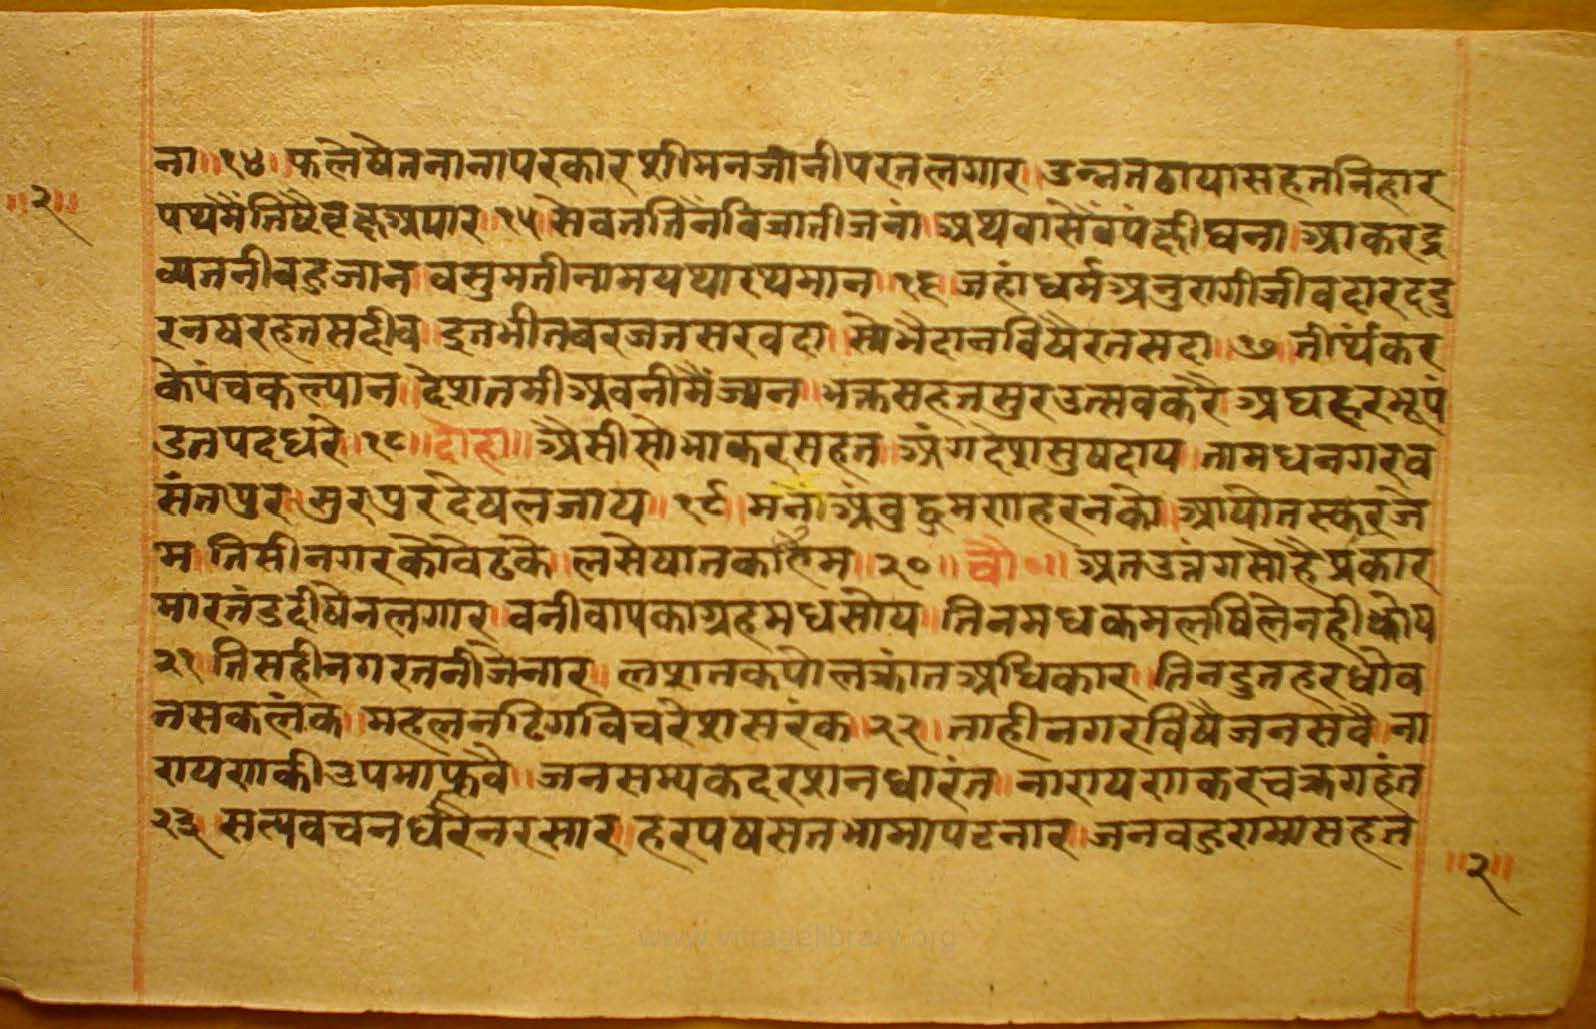 ना॥१४॥फलेषेतनानापरकारशीमनजांनीपरतलगार॥उन्नतठायासहतनिहार
॥२॥
पथमैंतिषैवृक्षअपार॥१५॥सेवनतिनैंविजातीजनां॥अथवासेवैंपंक्षीघना॥आकरद्र
व्यतनीबहुजान॥वसुमतीनामयथारथमान॥१६॥जहांधर्मअनुरागीजीवदारदहु
रनषरहतसदीव॥इतभीतवरजतसरवदा॥सोभैदानविषैरतसदा॥१७॥तीर्थंकर
केपंचकल्यान॥देशतमीअवनीमैंज्यन॥भक्तसहतसुरउत्सवकरै॥अघहरभूपं
उतपदधरे॥१८॥दोहा॥ऐसीसोभाकरसहत॥अंगदेशसुषदाय॥तामधनगरव
संतपुर॥सुरपुरदेषलजाय॥१९॥मनोअंबुद्रुमगाहरनको॥आयोतस्करजे
म॥तिसीनगरकोवैढके॥लसेषातकाहेम॥२०॥चौ०॥अतउतंगसोहैप्रकार
मारतंडदीषैनलगार॥वनीवापकाग्रहमधसोय॥तिनमधकमलषिलेनहीकोय
२१॥तिसहीनगरतनीजेनार॥लशतकपोलक्रांतअधिकार॥तिनदुतहरधोव
नसकलंक॥महलनटिगविचरेशसरंक॥२२॥ताहीनगरविषैजनसवै॥ना
रायणकीउपमाफवै॥जनसम्यकदरशनधारंत॥नारायणकरचक्रगहंत
२३॥सत्यवचनधरैनरसार॥हरपषसतभामापटनार॥जनवहुराम्यसहत
॥२॥
www.vitragelibrary.org